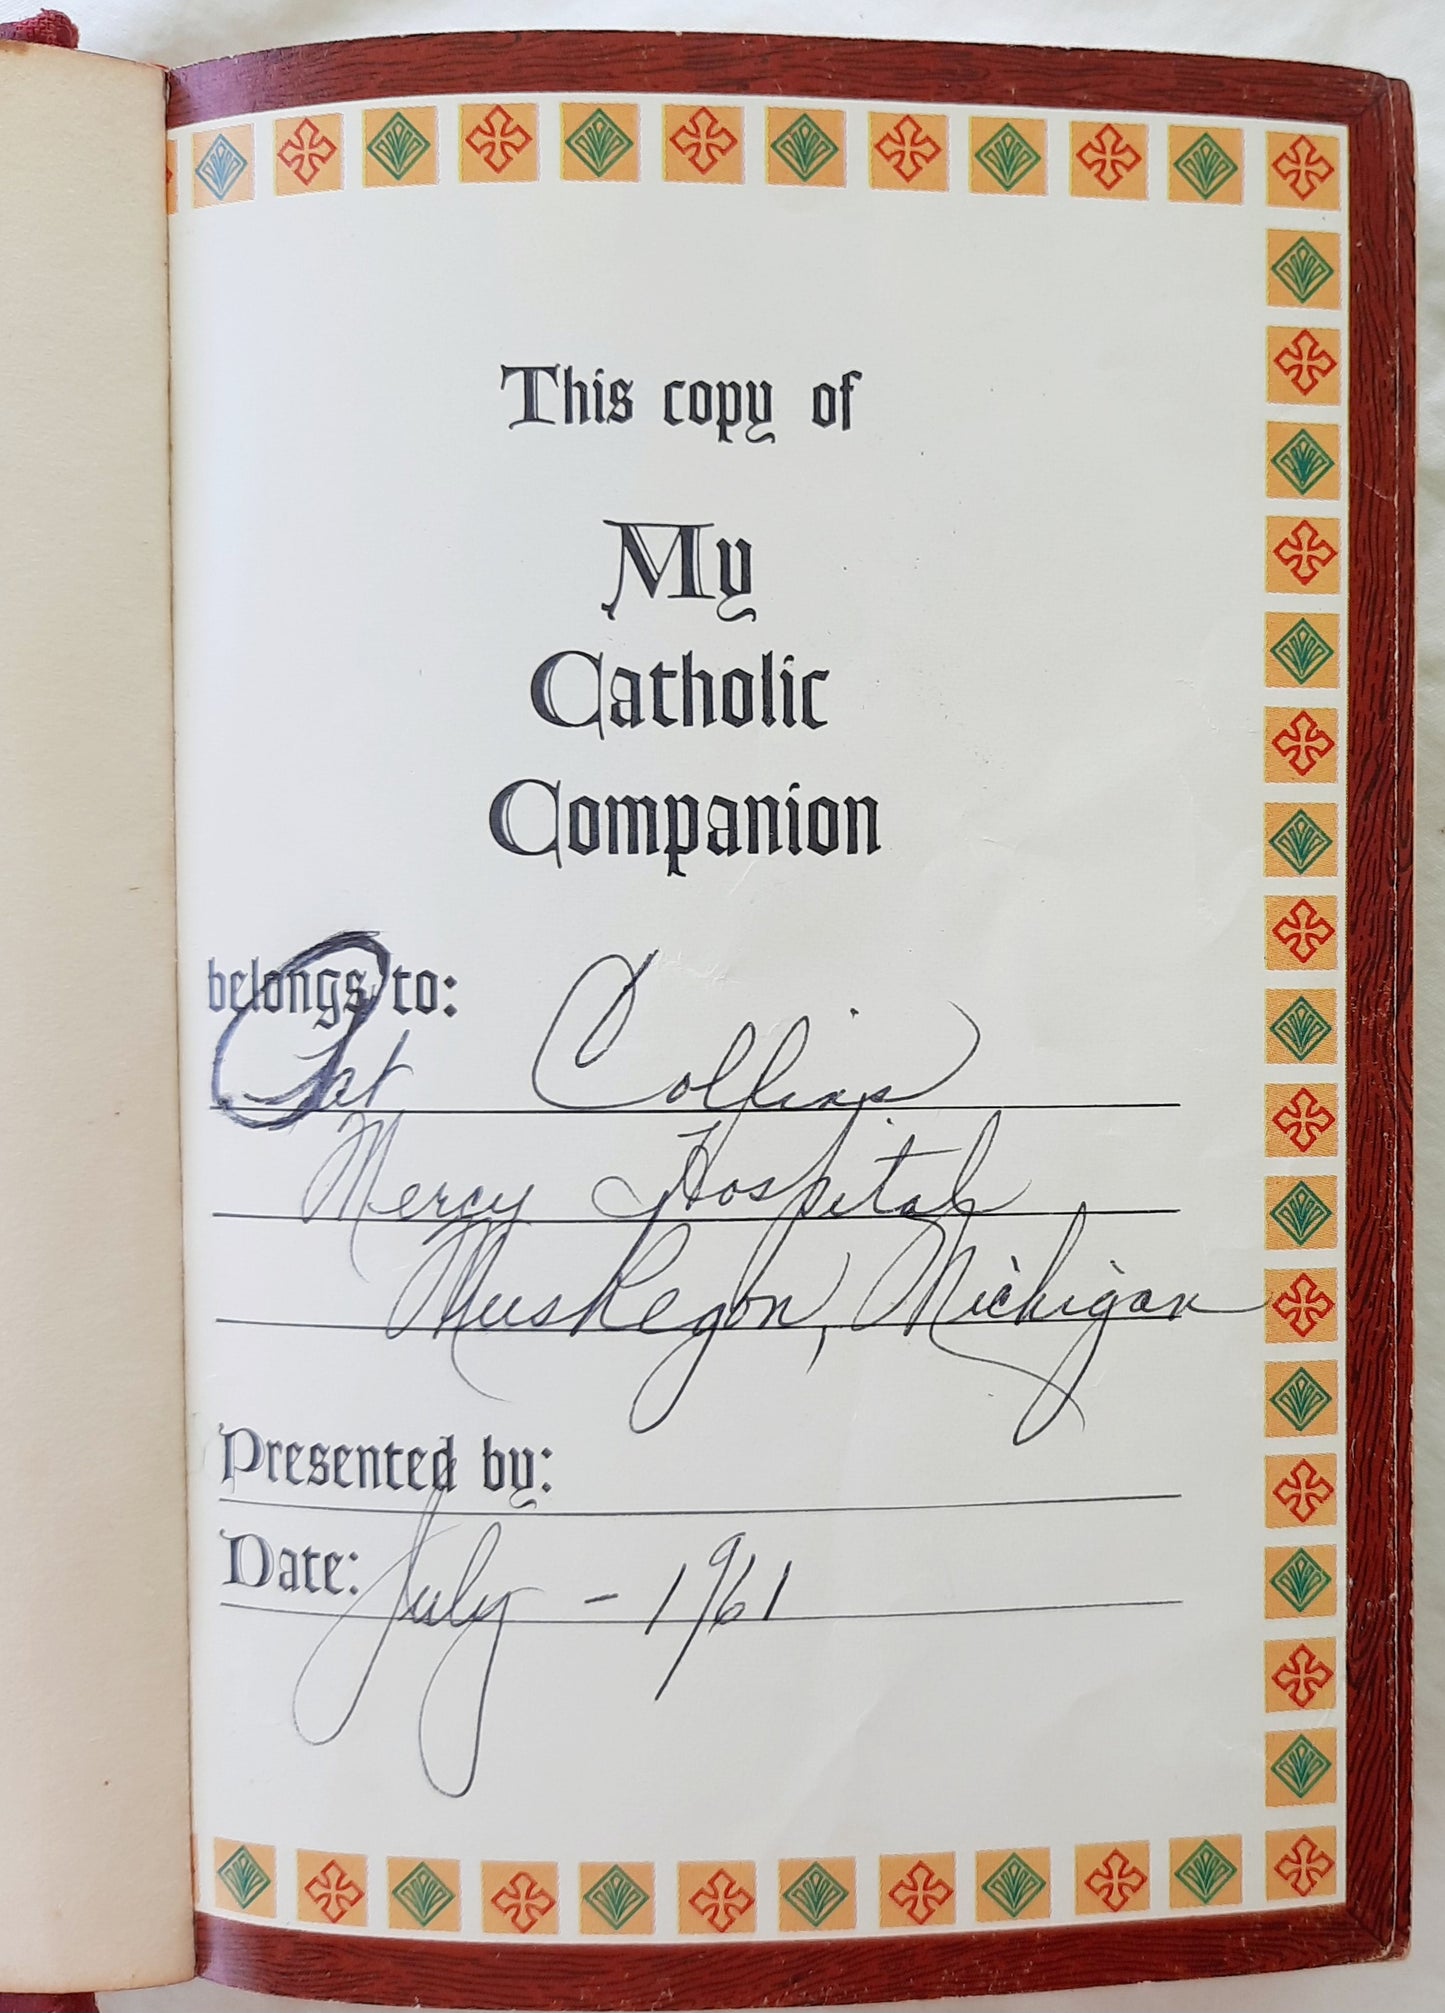 This copy of
My
Catholic
Companion
belongs to:
Pat Collins
Mercy Hospital
Muskegon, Michigan
Presented by:
Date: July - 1961